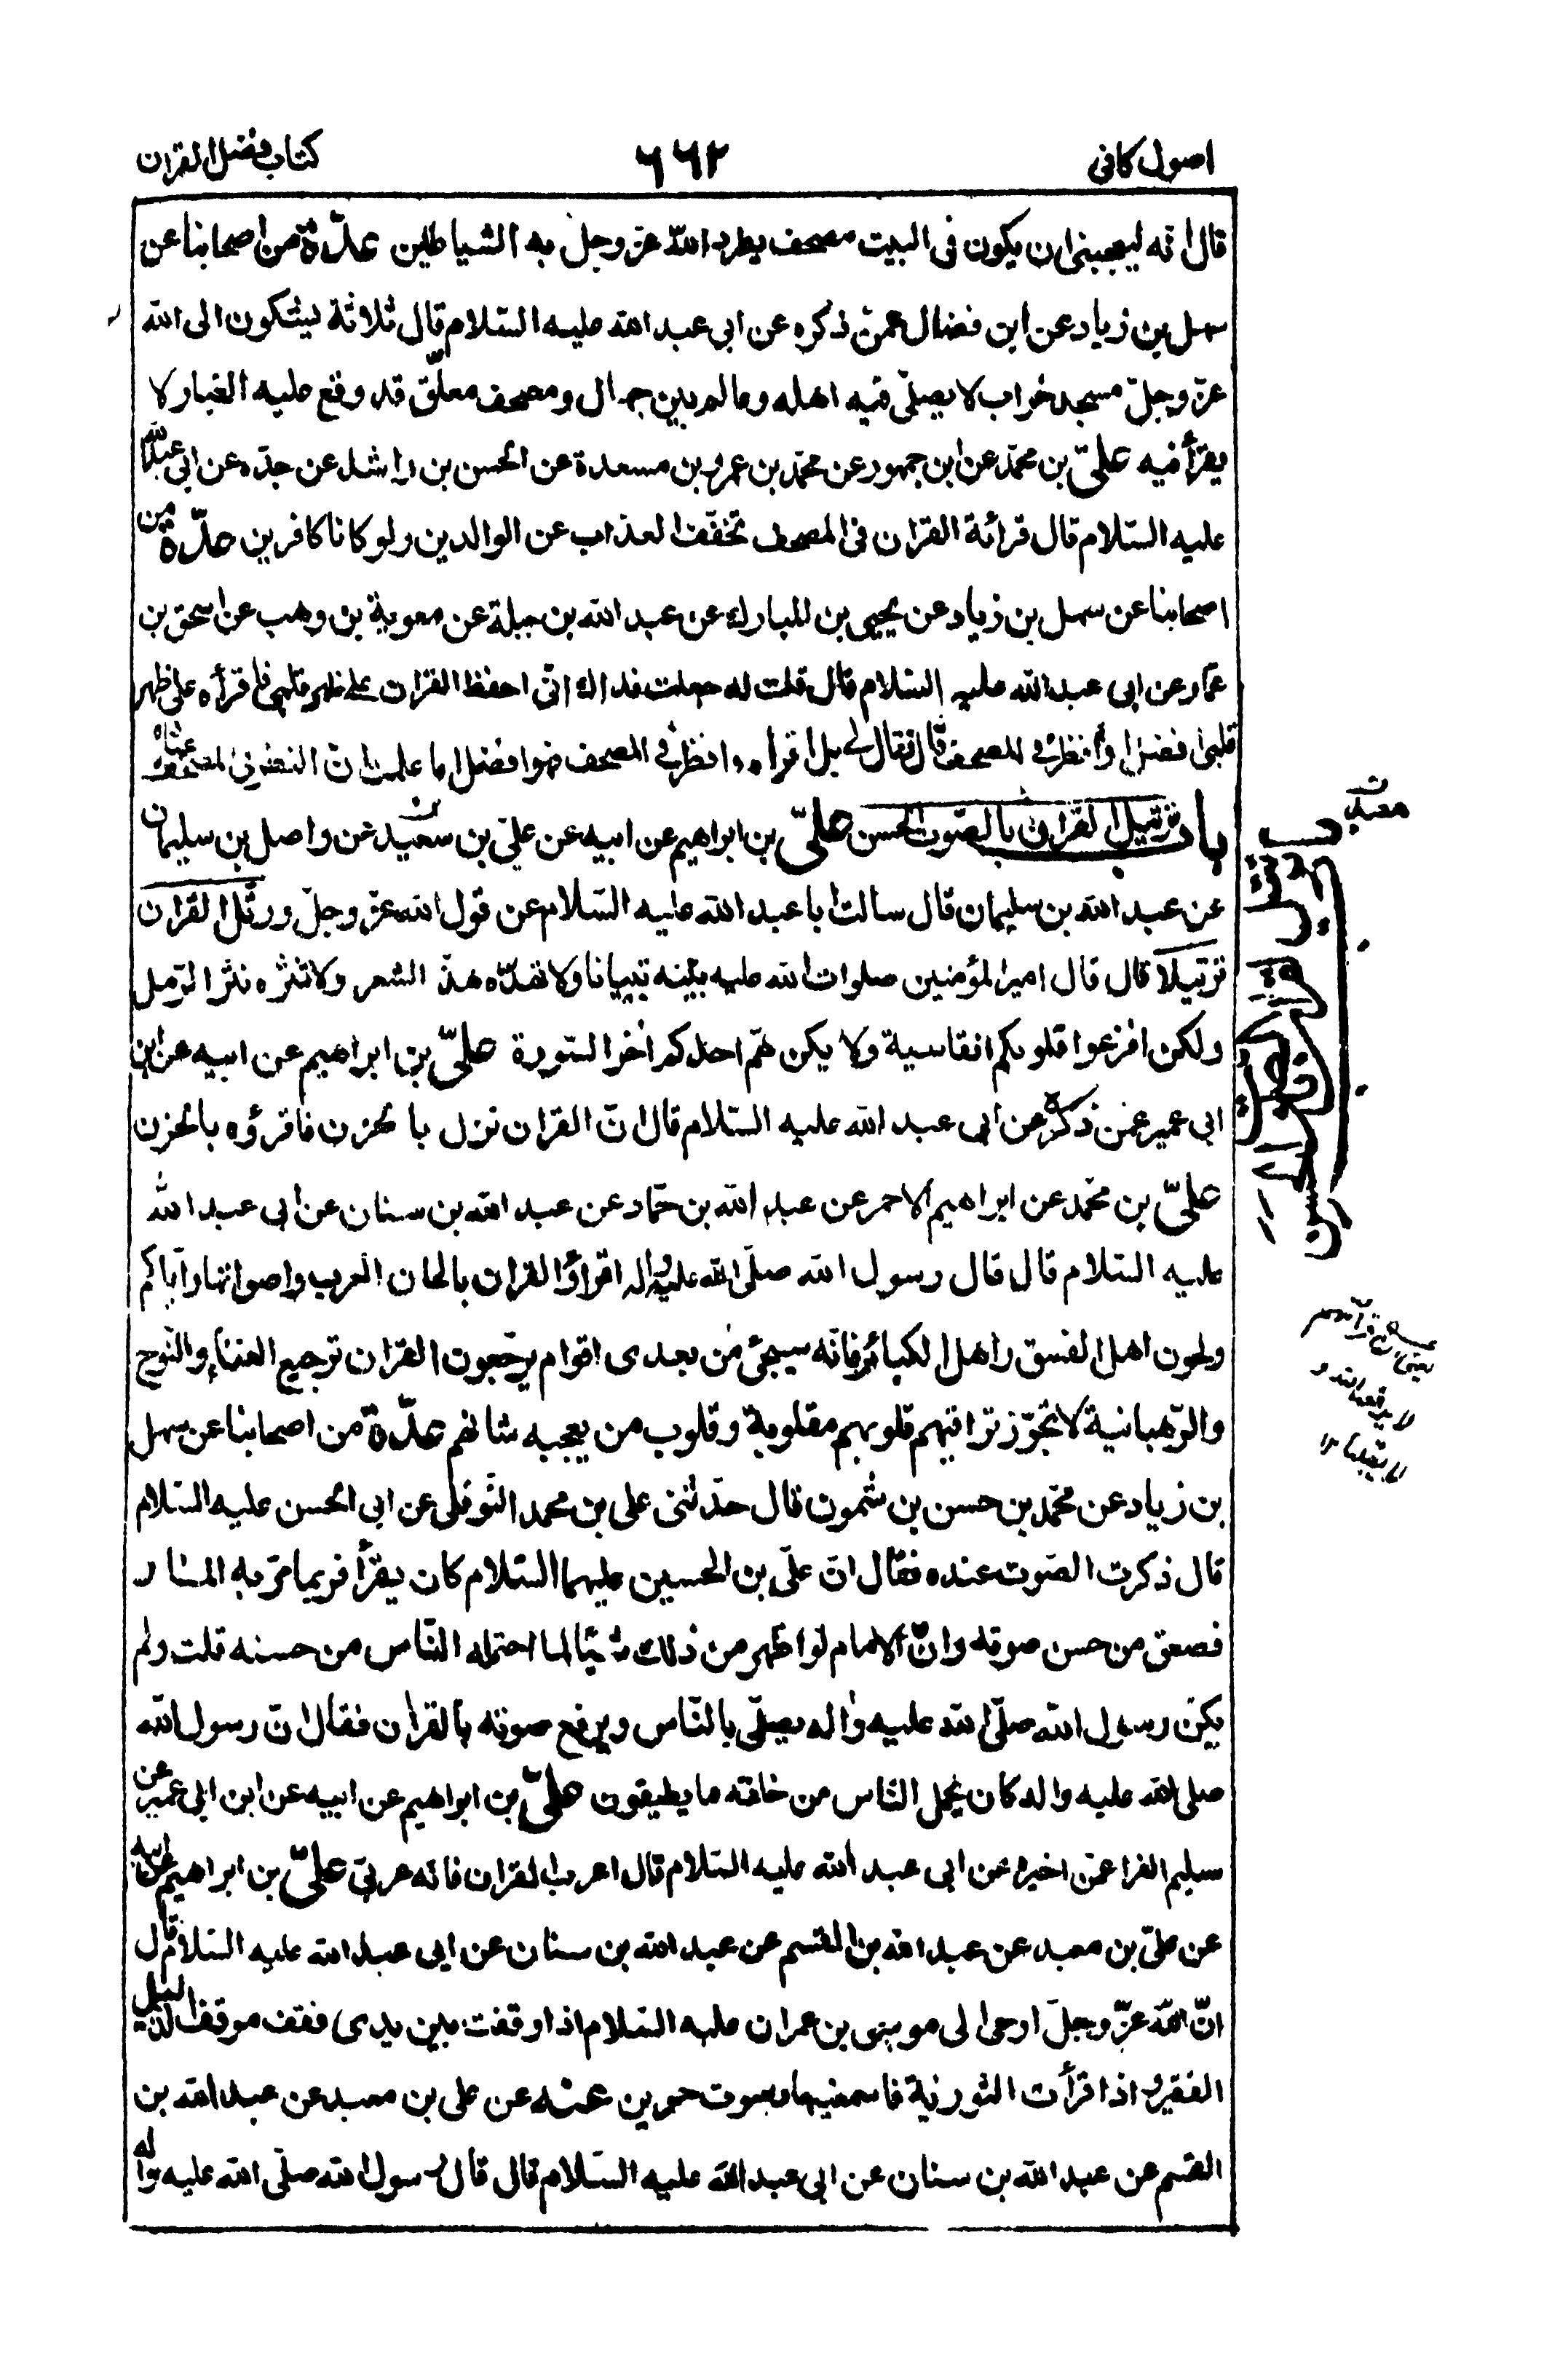 اصول كافى
٦٦٢
كتاب فضل القران
قال انه ليعجبنى ان يكون فى البيت مصحف يطرد الله عزوجل به الشياطين عدّة من اصحابنا عن
سهل بن زياد عن ابن فضال عمن ذكره عن ابى عبد الله عليه السلام قال ثلاثة يشكون الى الله
عزوجل مسجد خراب لا يصلّى فيه اهله وعالم بين جهال ومصحف معلّق قد وقع عليه الغبار لا
يقرأ فيه علىّ بن محمد عن ابن جمهور عن محمد بن عمرو بن مسعدة عن الحسن بن راشد عن جده عن ابى عبد الله
عليه السلام قال قرائة القران فى المصحف تخفف العذاب عن الوالدين ولو كانا كافرين عدّة من
اصحابنا عن سهل بن زياد عن يحيى بن المبارك عن عبد الله بن جبلة عن معوية بن وهب عن اسحق بن
عمار عن ابى عبد الله عليه السلام قال قلت له جعلت فداك انّى احفظ القران على ظهر قلبى فاقرأه على ظهر
قلبى افضل او انظر فى المصحف قال فقال لى بل اقرأه وانظر فى المصحف فهو افضل اما علمت ان النظر فى المصحف عبادة
باب ترتيل القران بالصوت الحسن علىّ بن ابراهيم عن ابيه عن على بن سعيد عن واصل بن سليمان
عن عبد الله بن سليمان قال سالت ابا عبد الله عليه السلام عن قول الله عزوجل ورتّل القران
ترتيلا قال قال امير المؤمنين صلوات الله عليه بيّنه تبيانا ولا تهذّه هذّ الشعر ولا تنثره نثر الرمل
ولكن افزعوا قلوبكم القاسية ولا يكن همّ احدكم اخر السورة علىّ بن ابراهيم عن ابيه عن ابن
ابى عمير عمن ذكره عن ابى عبد الله عليه السلام قال ان القران نزل بالحزن فاقرؤه بالحزن
علىّ بن محمد عن ابراهيم الاحمر عن عبد الله بن حماد عن عبد الله بن سنان عن ابى عبد الله
عليه السلام قال قال رسول الله صلّى الله عليه واله اقرأوا القران بالحان العرب واصواتها واياكم
ولحون اهل الفسق واهل الكبائر فانه سيجئ من بعدى اقوام يرجّعون القران ترجيع الغناء والنوح
والرهبانية لا تجوز تراقيهم قلوبهم مقلوبة وقلوب من يعجبه شانهم عدّة من اصحابنا عن سهل
بن زياد عن محمد بن حسن بن شمون قال حدثنى على بن محمد النوفلى عن ابى الحسن عليه السلام
قال ذكرت الصوت عنده فقال ان على بن الحسين عليهما السلام كان يقرأ فربما مرّ به المار
فصعق من حسن صوته وان الامام لو اظهر من ذلك شيئا لما احتمله الناس من حسنه قلت ولم
يكن رسول الله صلّى الله عليه واله يصلّى بالناس ويرفع صوته بالقران فقال ان رسول الله
صلى الله عليه واله كان يحمل الناس من خلفه ما يطيقون علىّ بن ابراهيم عن ابيه عن ابن ابى عمير عن
سليم الفرا عمن اخبره عن ابى عبد الله عليه السلام قال اعرب القران فانه عربى علىّ بن ابراهيم عن ابيه
عن على بن معبد عن عبد الله بن القسم عن عبد الله بن سنان عن ابى عبد الله عليه السلام قال
انّ الله عزّوجل اوحى الى موسى بن عمران عليه السلام اذا وقفت بين يدى فقف موقف الذليل
الفقير واذا قرأت التورية فاسمعنيها بصوت حزين عنه عن على بن معبد عن عبد الله بن
القسم عن عبد الله بن سنان عن ابى عبد الله عليه السلام قال قال رسول الله صلّى الله عليه واله
معبد ن